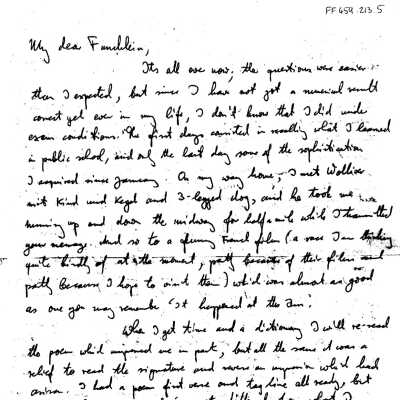 FF659.213.5
My dear Fraulein,
It's all over now; the questions were easier
than I expected, but since I have not got a numerical result
correct yet ever in my life, I don't know that I did under
exam conditions. The first days consisted in recalling what I learned
in public school, and only the last day some of the sophistication
I acquired since January. On my way home, I met
mit Kind und Kegel and 3-legged dog, and he took me
running up and down the midway for half a mile which I
your memory. And so to a funny French film (a race I am thinking
quite kindly of at the moment, partly because of their films and
partly because I hope to visit them) which was almost as good
as one you may remember "It happened at the Inn".
When I get time and a dictionary I will re-read
the poem which impressed me in part, but all the same it was a
relief to read the signature and reverse an impression which had
arisen. I had a poem first verse and tag line all ready, but